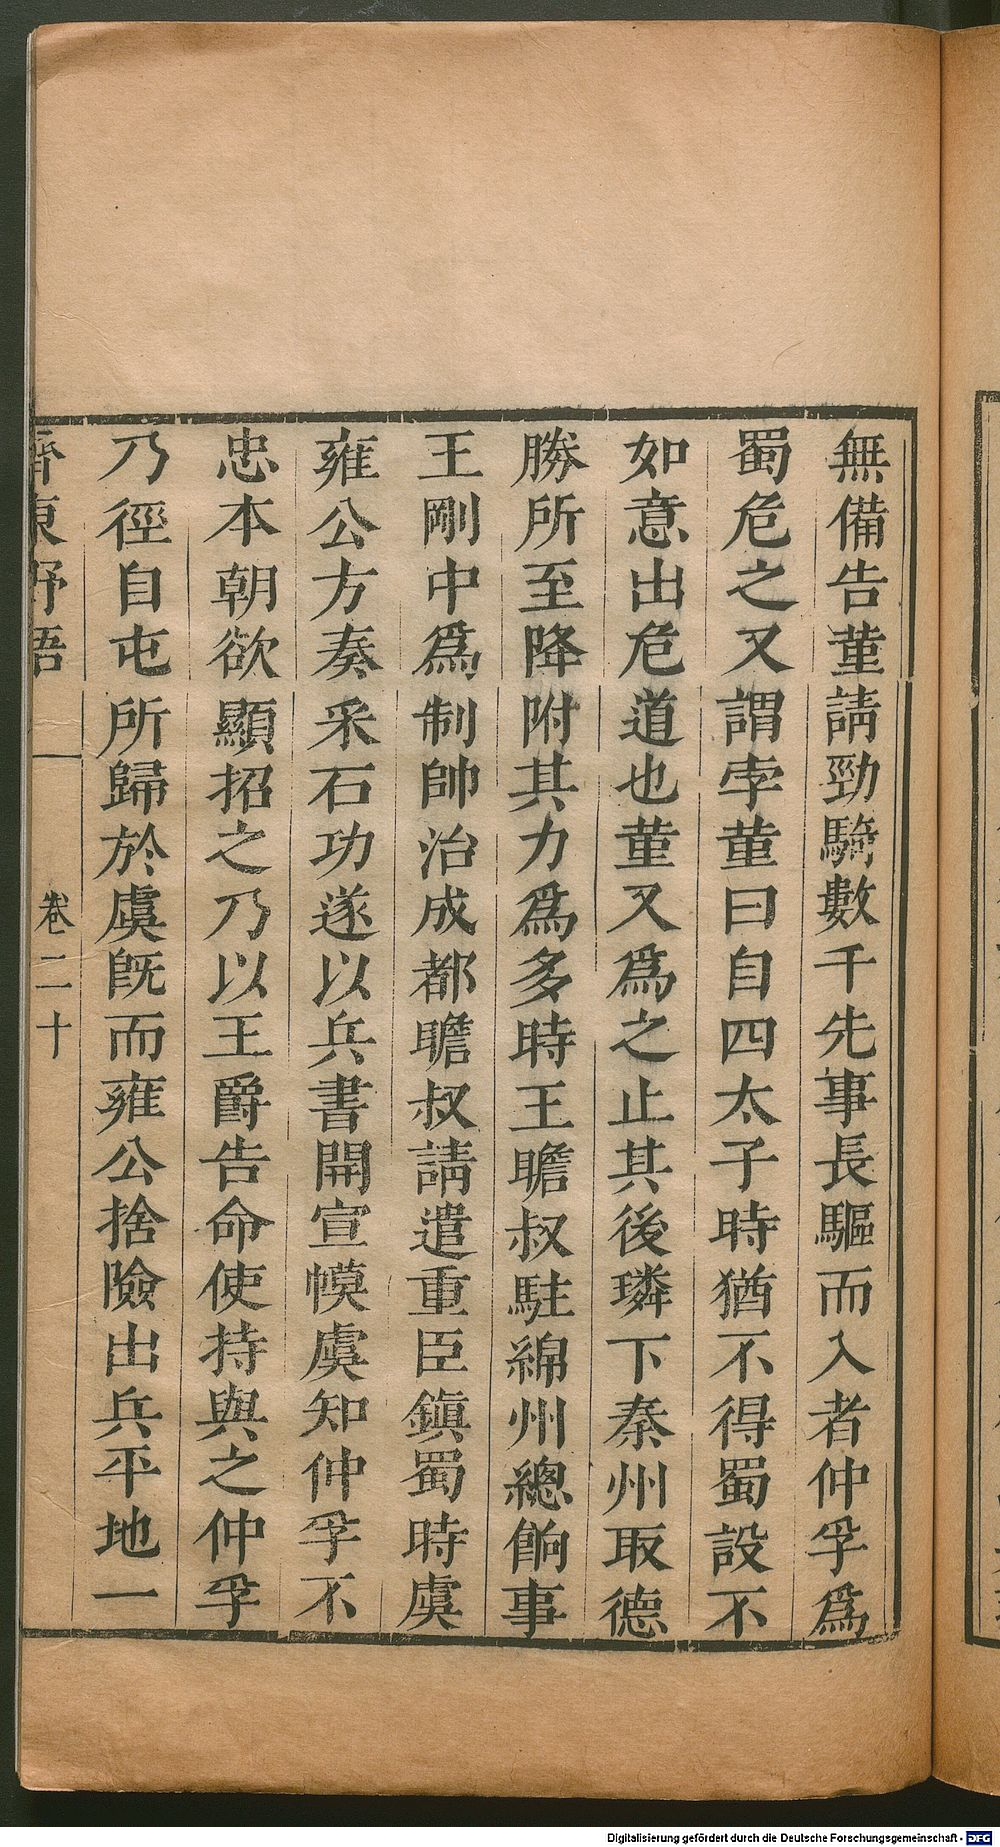 無備告董請勁騎數千先事長驅而入者仲孚爲
蜀危之又謂孛董曰自四太子時猶不得蜀設不
如意出危道也董又爲之止其後璘下秦州取德
勝所至降附其力爲多時王瞻叔駐綿州總餉事
王剛中爲制帥治成都瞻叔請遣重臣鎭蜀時虞
雍公方奏采石功遂以兵書開宣幙虞知仲孚不
忠本朝欲顯招之乃以王爵告命使持與之仲孚
乃徑自屯所歸於虞旣而雍公捨險出兵平地一
齊東野語 卷二十
Digitalisierung gefördert durch die Deutsche Forschungsgemeinschaft - DFG